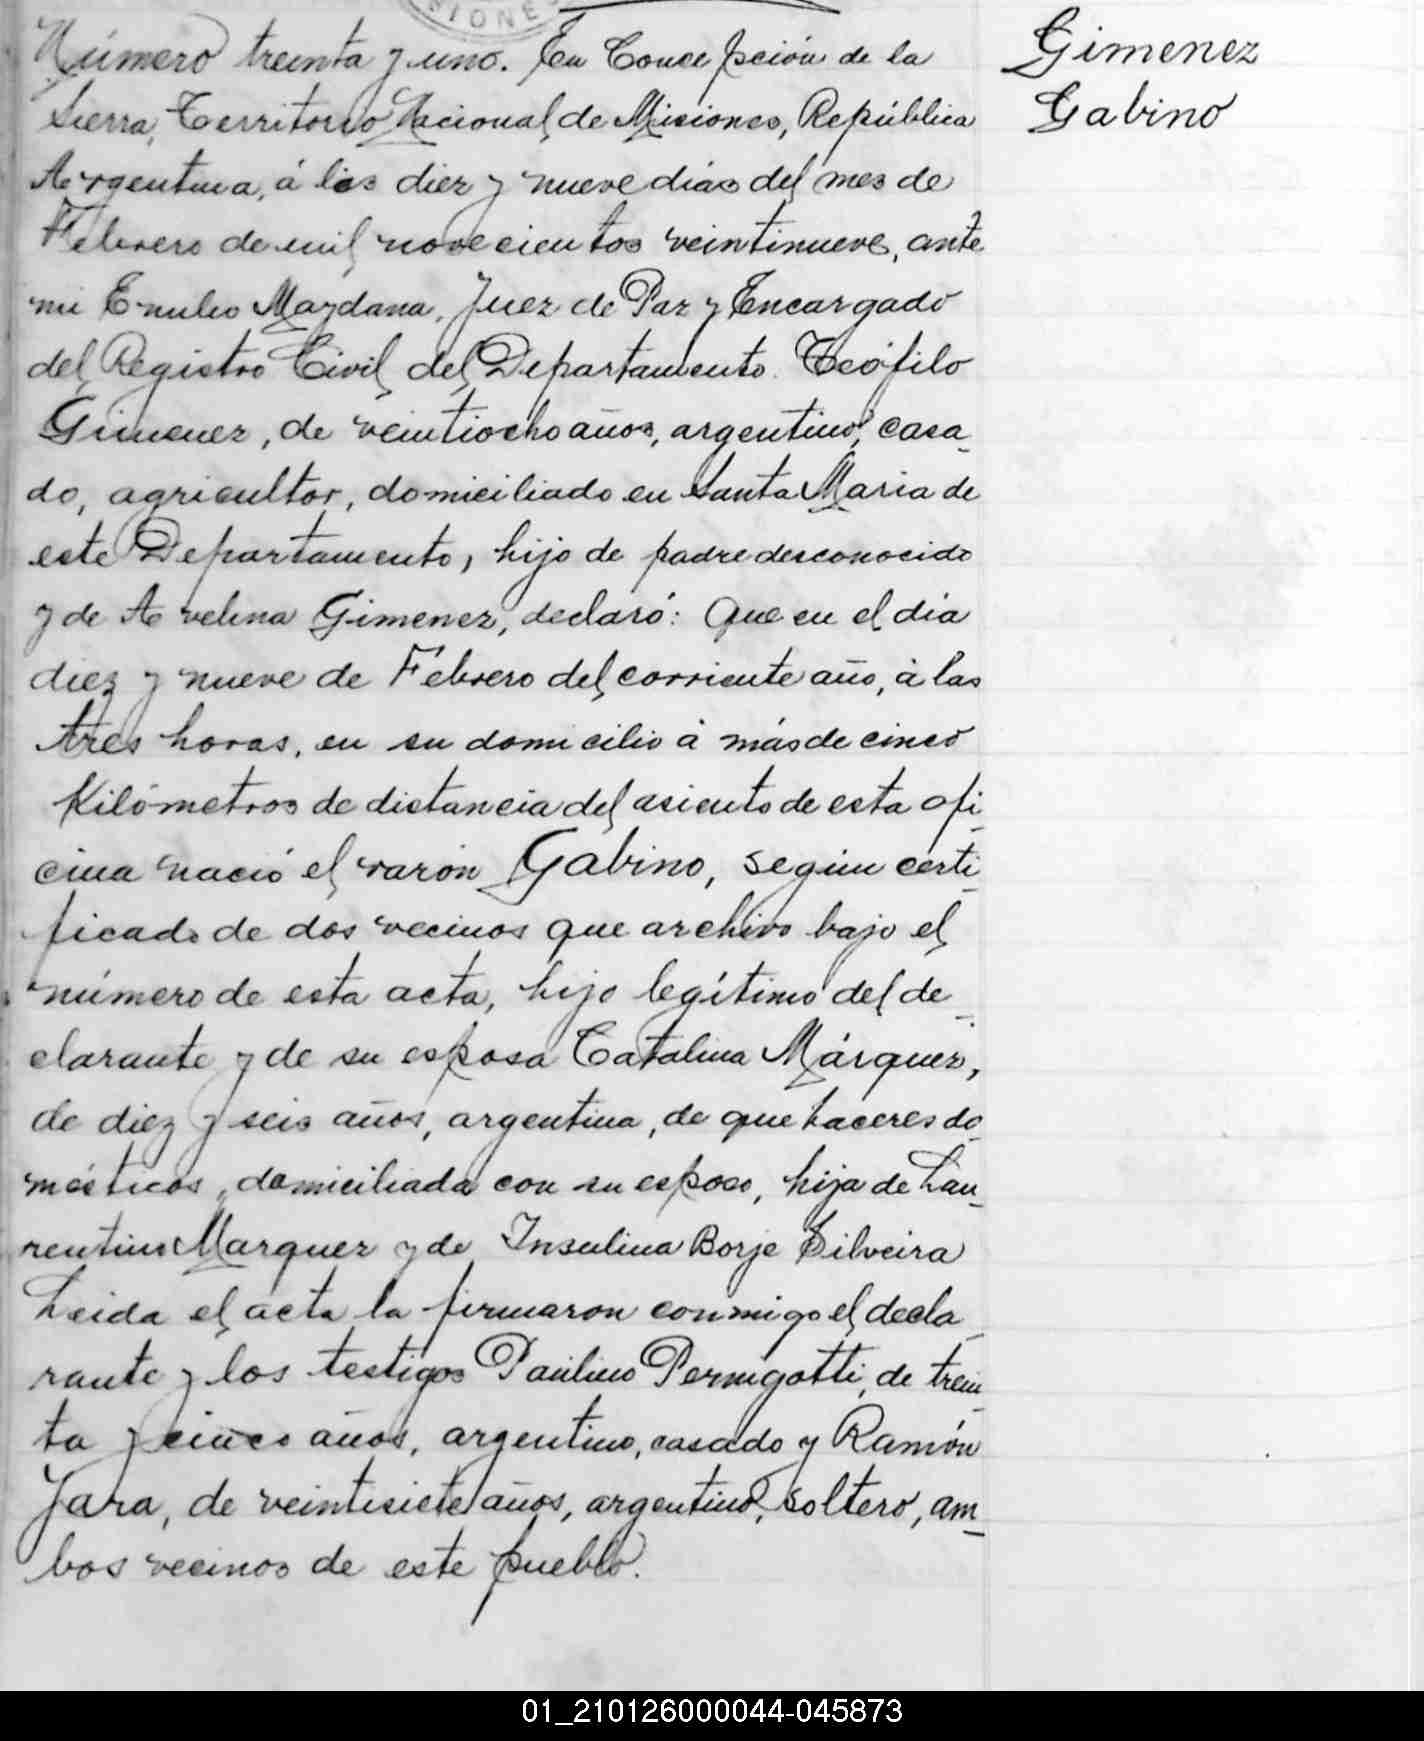 IONES
Número treinta y uno. En Concepción de la
Sierra, Territorio Nacional de Misiones, República
Argentina, á los diez y nueve dias del mes de
Febrero de mil novecientos veintinueve, ante
mi Emilio Maydana, Juez de Paz y Encargado
del Registro Civil del Departamento. Teófilo
Gimenez, de veintiocho años, argentino, casa_
do, agricultor, domiciliado en Santa Maria de
este Departamento, hijo de padre desconocido
y de Avelina Gimenez, declaró: Que en el dia
diez y nueve de Febrero del corriente año, á las
tres horas, en su domicilio á más de cinco
Kilómetros de distancia del asiento de esta ofi_
cina nació el varón Gabino, según certi_
ficado de dos vecinos que archivo bajo el
número de esta acta, hijo legítimo del de_
clarante y de su esposa Catalina Márquez,
de diez y seis años, argentina, de que haceres do_
mésticos, domiciliada con su esposo, hija de Lau_
rentino Marquez y de Insulina Borje Silveira
Leida el acta la firmaron conmigo el decla_
rante y los testigos Paulino Pernigotti, de trein_
ta y cinco años, argentino, casado y Ramón
Jara, de veintisiete años, argentino, soltero, am_
bos vecinos de este pueblo.
Gimenez
Gabino
01_210126000044-045873